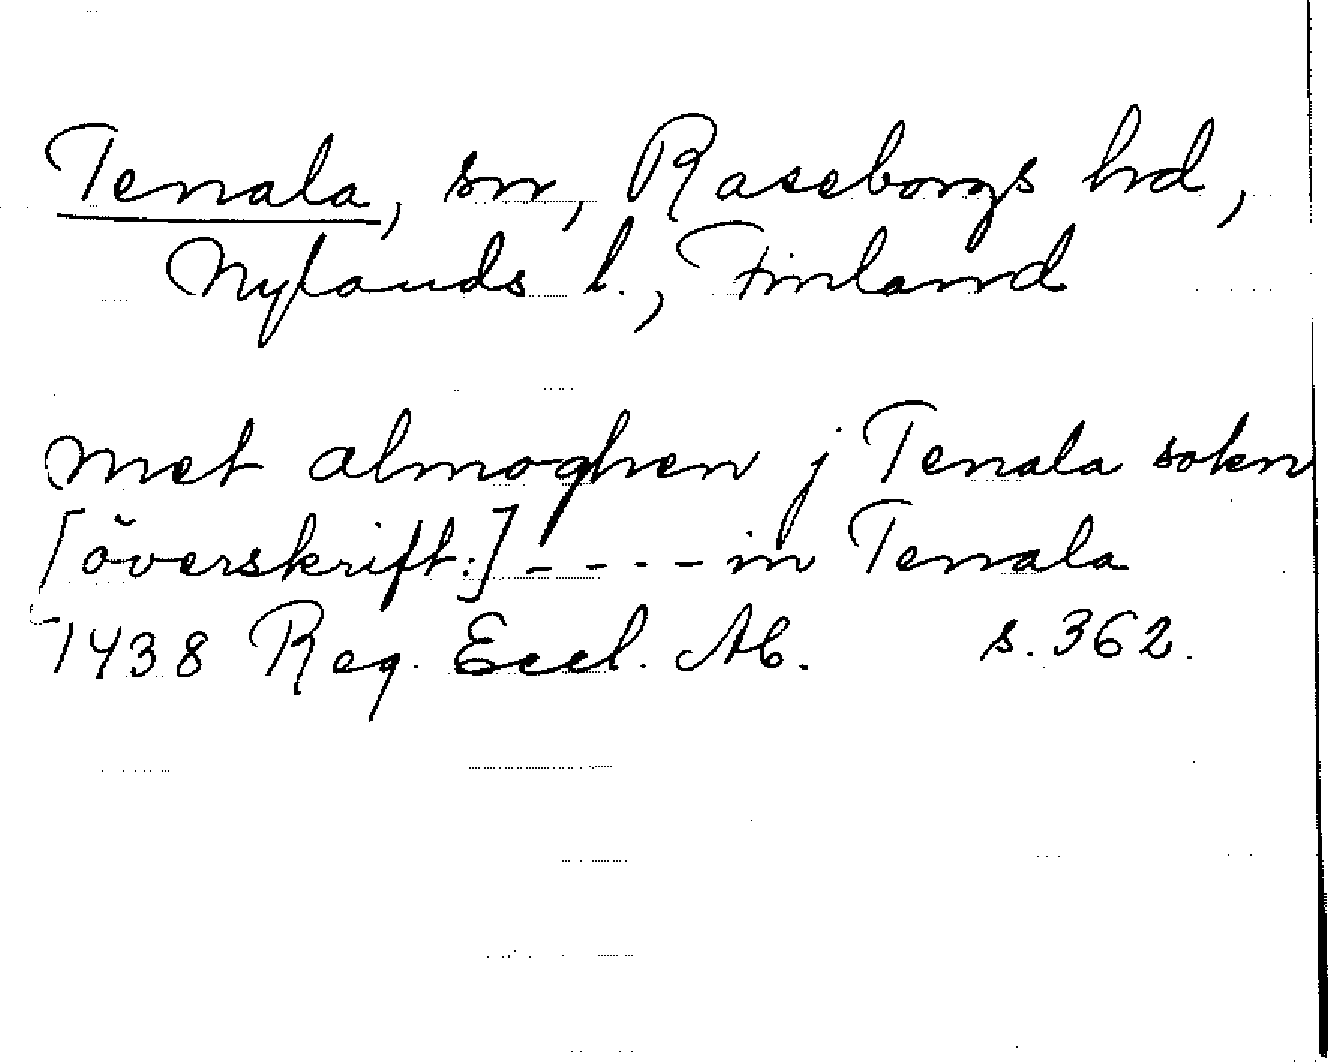 Tenala, sn, Raseborgs hrd,
Nylands l., Finland
met almoghen j Tenala sokn
[överskrift:] - - - - in Tenala
1438 Reg. Eccl. Ab. s. 362.